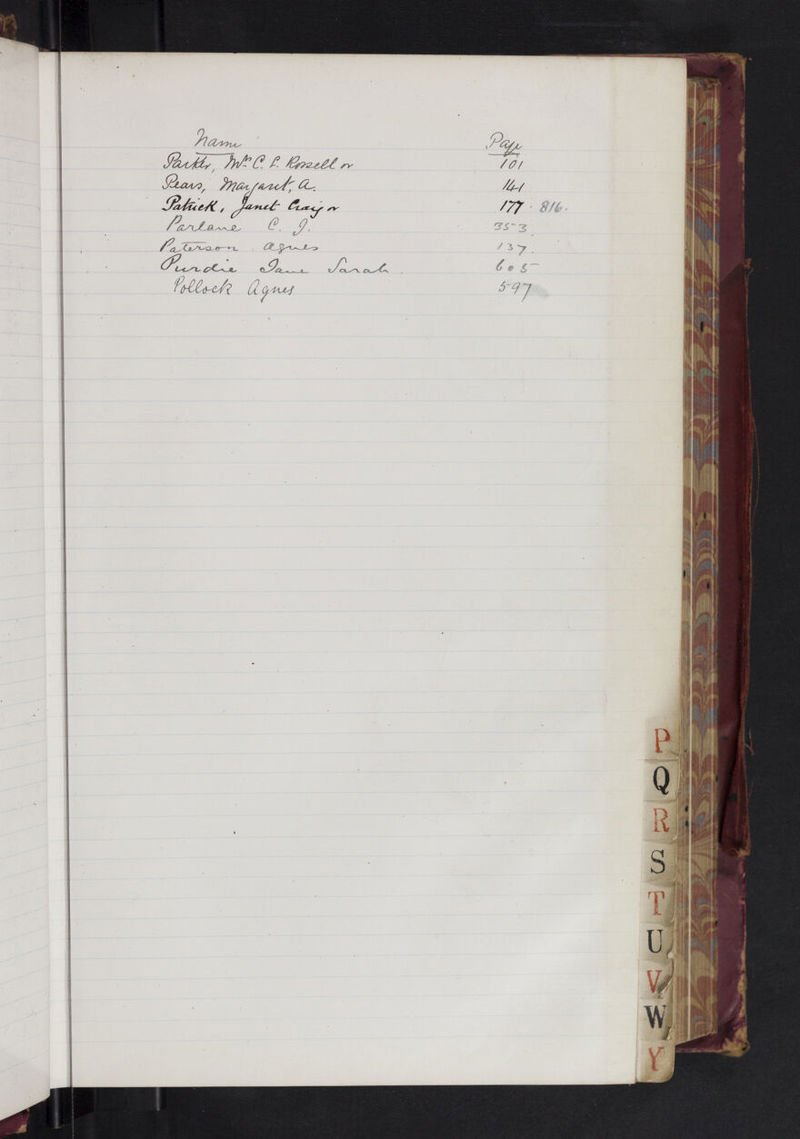 Name Page
Parker, Mrs C. L. Rossell or 101
Pears, Margaret, A. 141
Patrick, Janet Craig or 177 816.
Parlane C. J. 353.
Paterson Agnes 137.
Purdie Jane Sarah. 605
Pollock Agnes 597
P
Q
R
S
T
U
V
W
Y